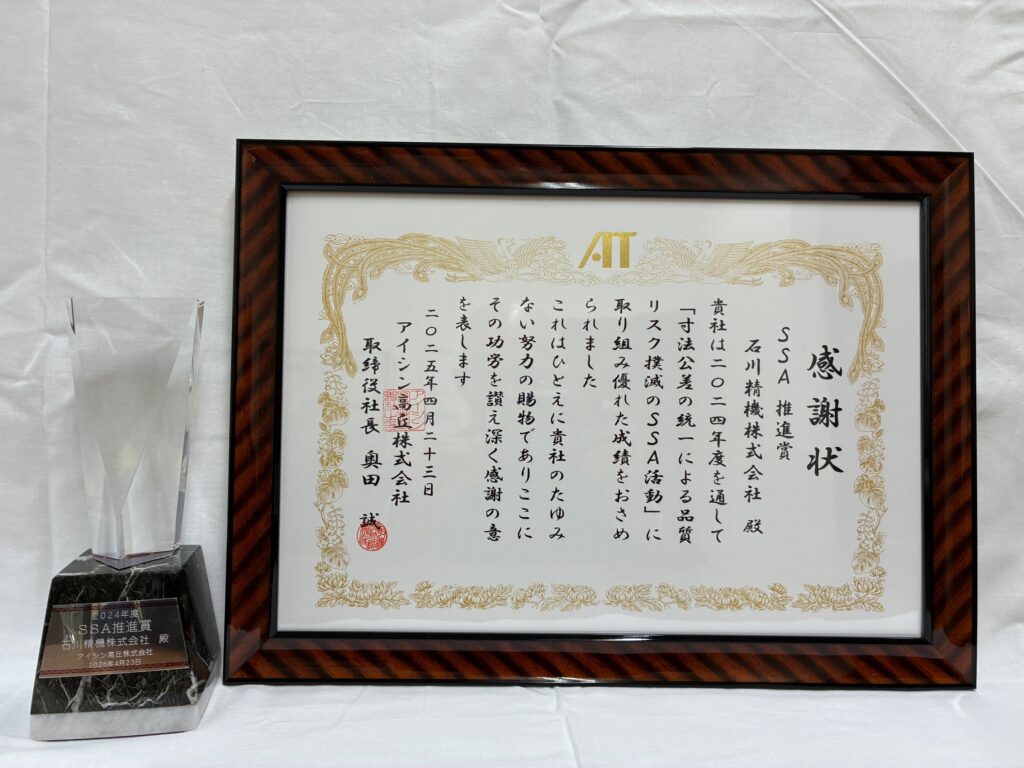 AT
感謝状
SSA 推進賞
石川精機株式会社 殿
貴社は二〇二四年度を通して
「寸法公差の統一による品質
リスク撲滅のSSA活動」に
取り組み優れた成績をおさめ
られました
これはひとえに貴社のたゆみ
ない努力の賜物でありここに
その功労を讃え深く感謝の意
を表します
二〇二五年四月二十三日
アイシン高丘株式会社
取締役社長 奥田 誠
2024年度
SSA推進賞
石川精機株式会社 殿
アイシン高丘株式会社
2025年4月23日